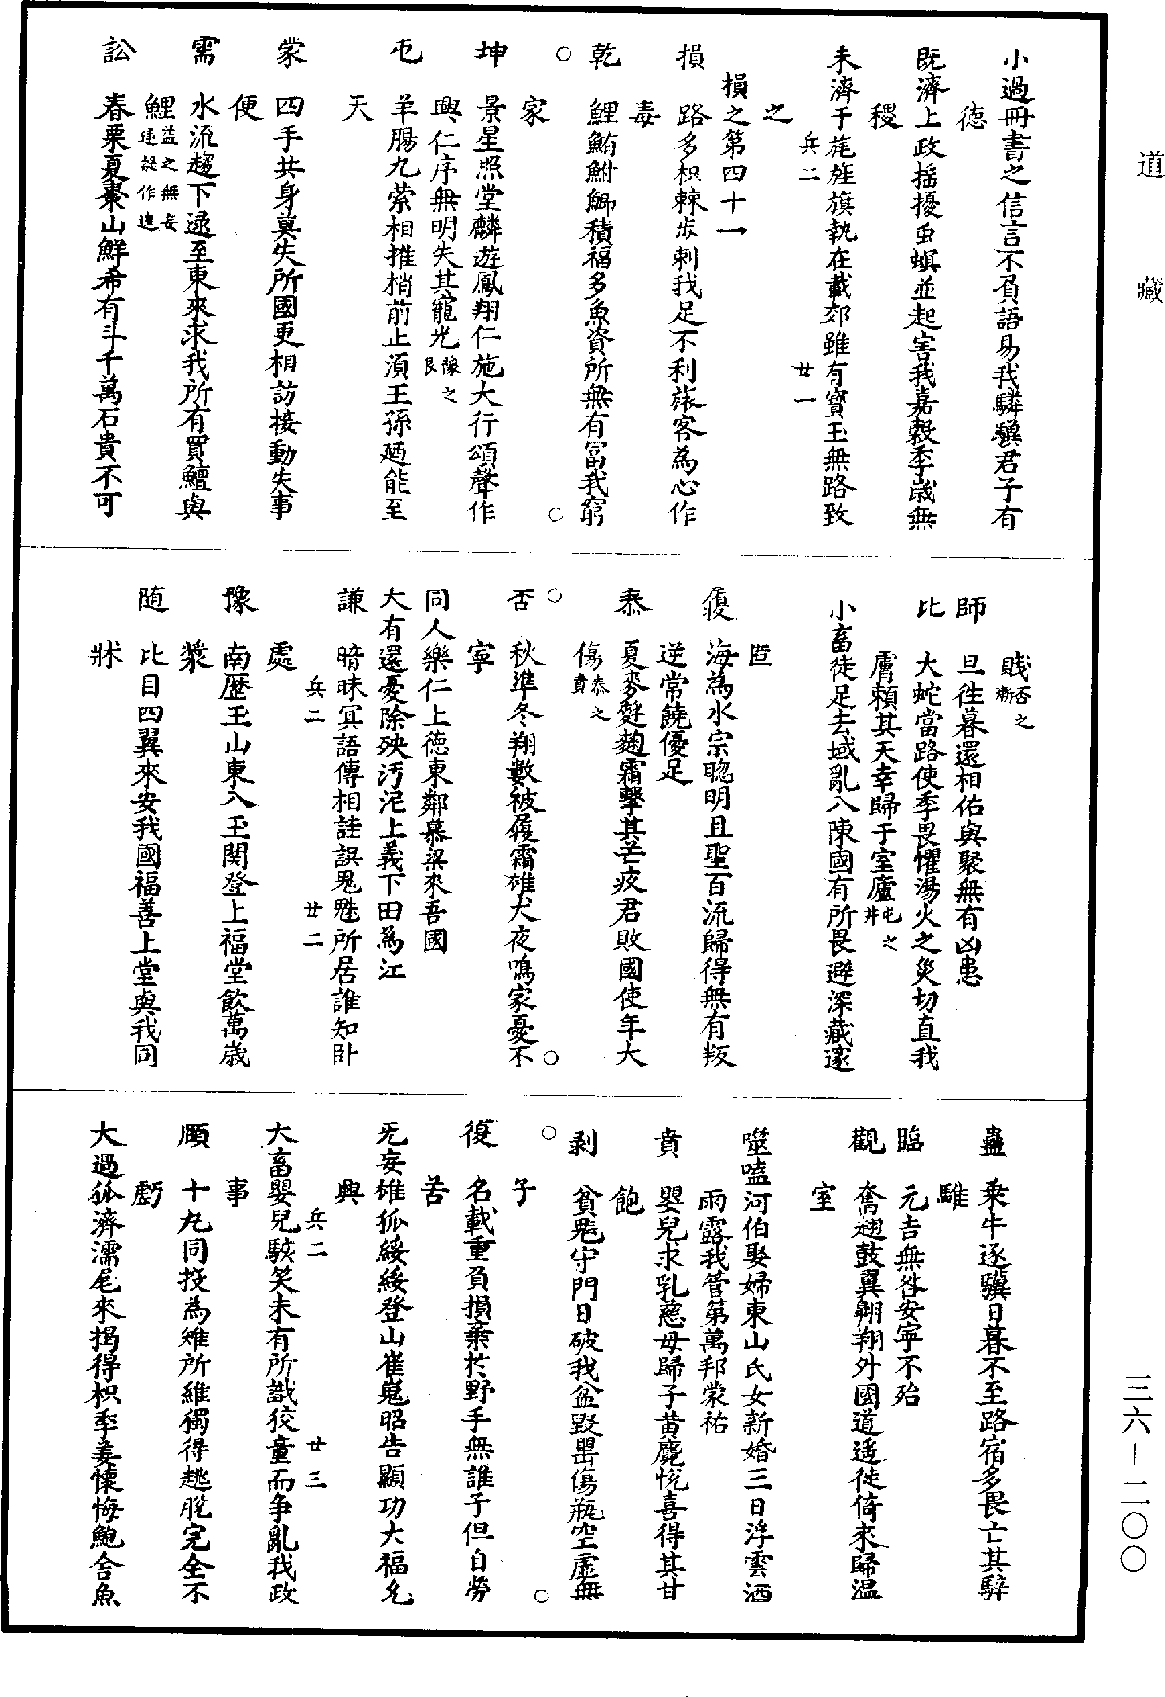 道藏
小過冊書之信言不負語易我驎驥君子有
德
既濟上政搖擾虫螟並起害我嘉穀季歲無
稷
未濟千旄旌旗執在載郊雖有寶玉無路致
兵二 廿一
之
損之第四十一
損 路多枳棘步刺我足不利旅客為心作
毒
乾 鯉鮪鮒鯽積福多魚資所無有富我窮
○ ○
家
坤 景星照堂麟遊鳳翔仁施大行頌聲作
興仁序無明失其寵光豫之艮
屯 羊腸九縈相推稍前止須王孫廼能至
天
蒙 四手共身莫失所國更相訪接動失事
便
需 水流趨下遠至東來求我所有買鱣與
鯉益之無妄逮疑作遠
訟 春栗夏棗山鮮希有斗千萬石貴不可
賤否之漸
師 旦往暮還相佑與聚無有凶患
比 大蛇當路使季畏懼湯火之災切直我
膚賴其天幸歸于室廬屯之井
小畜徙足去域亂入陳國有所畏避深藏邃
匿
履 海為水宗聰明且聖百流歸得無有叛
逆常饒優足
泰 夏麥麨麴霜擊其芒疫君敗國使年大
傷泰之賁
○ ○
否 秋準冬翔數被履霜雄犬夜鳴家憂不
寧
同人樂仁上德東鄰慕梁來吾國
大有還憂除殃汚泥上義下田為江
謙 暗昧冥語傳相詿誤鬼魅所居誰知臥
兵二 廿二
處
豫 南歷玉山東入玉関登上福堂飲萬歲
漿
随 比目四翼來安我國福善上堂與我同
牀
蠱 乘牛逐驥日暮不至路宿多畏亡其騂
騅
臨 元吉無咎安寧不殆
觀 奮翅鼓翼翱翔外國逍遙徙倚來歸温
室
噬嗑河伯娶婦東山氏女新婚三日浮雲洒
雨露我菅第萬邦蒙祐
賁 嬰兒求乳慈母歸子黄麑悅喜得其甘
飽
剥 貧鬼守門日破我盆毀罌傷瓶空虛無
○ ○
子
復 名載重負損棄扵野手無誰子但自勞
苦
无妄雄狐綏綏登山崔嵬昭告顯功大福允
興
兵二 廿三
大畜嬰兒駭笑未有所識狡童而争亂我政
事
頤 十九同投為雉所維獨得逃脫完全不
虧
大過狐濟濡尾來掲得枳季姜懷悔鮑舍魚
三六—二〇〇